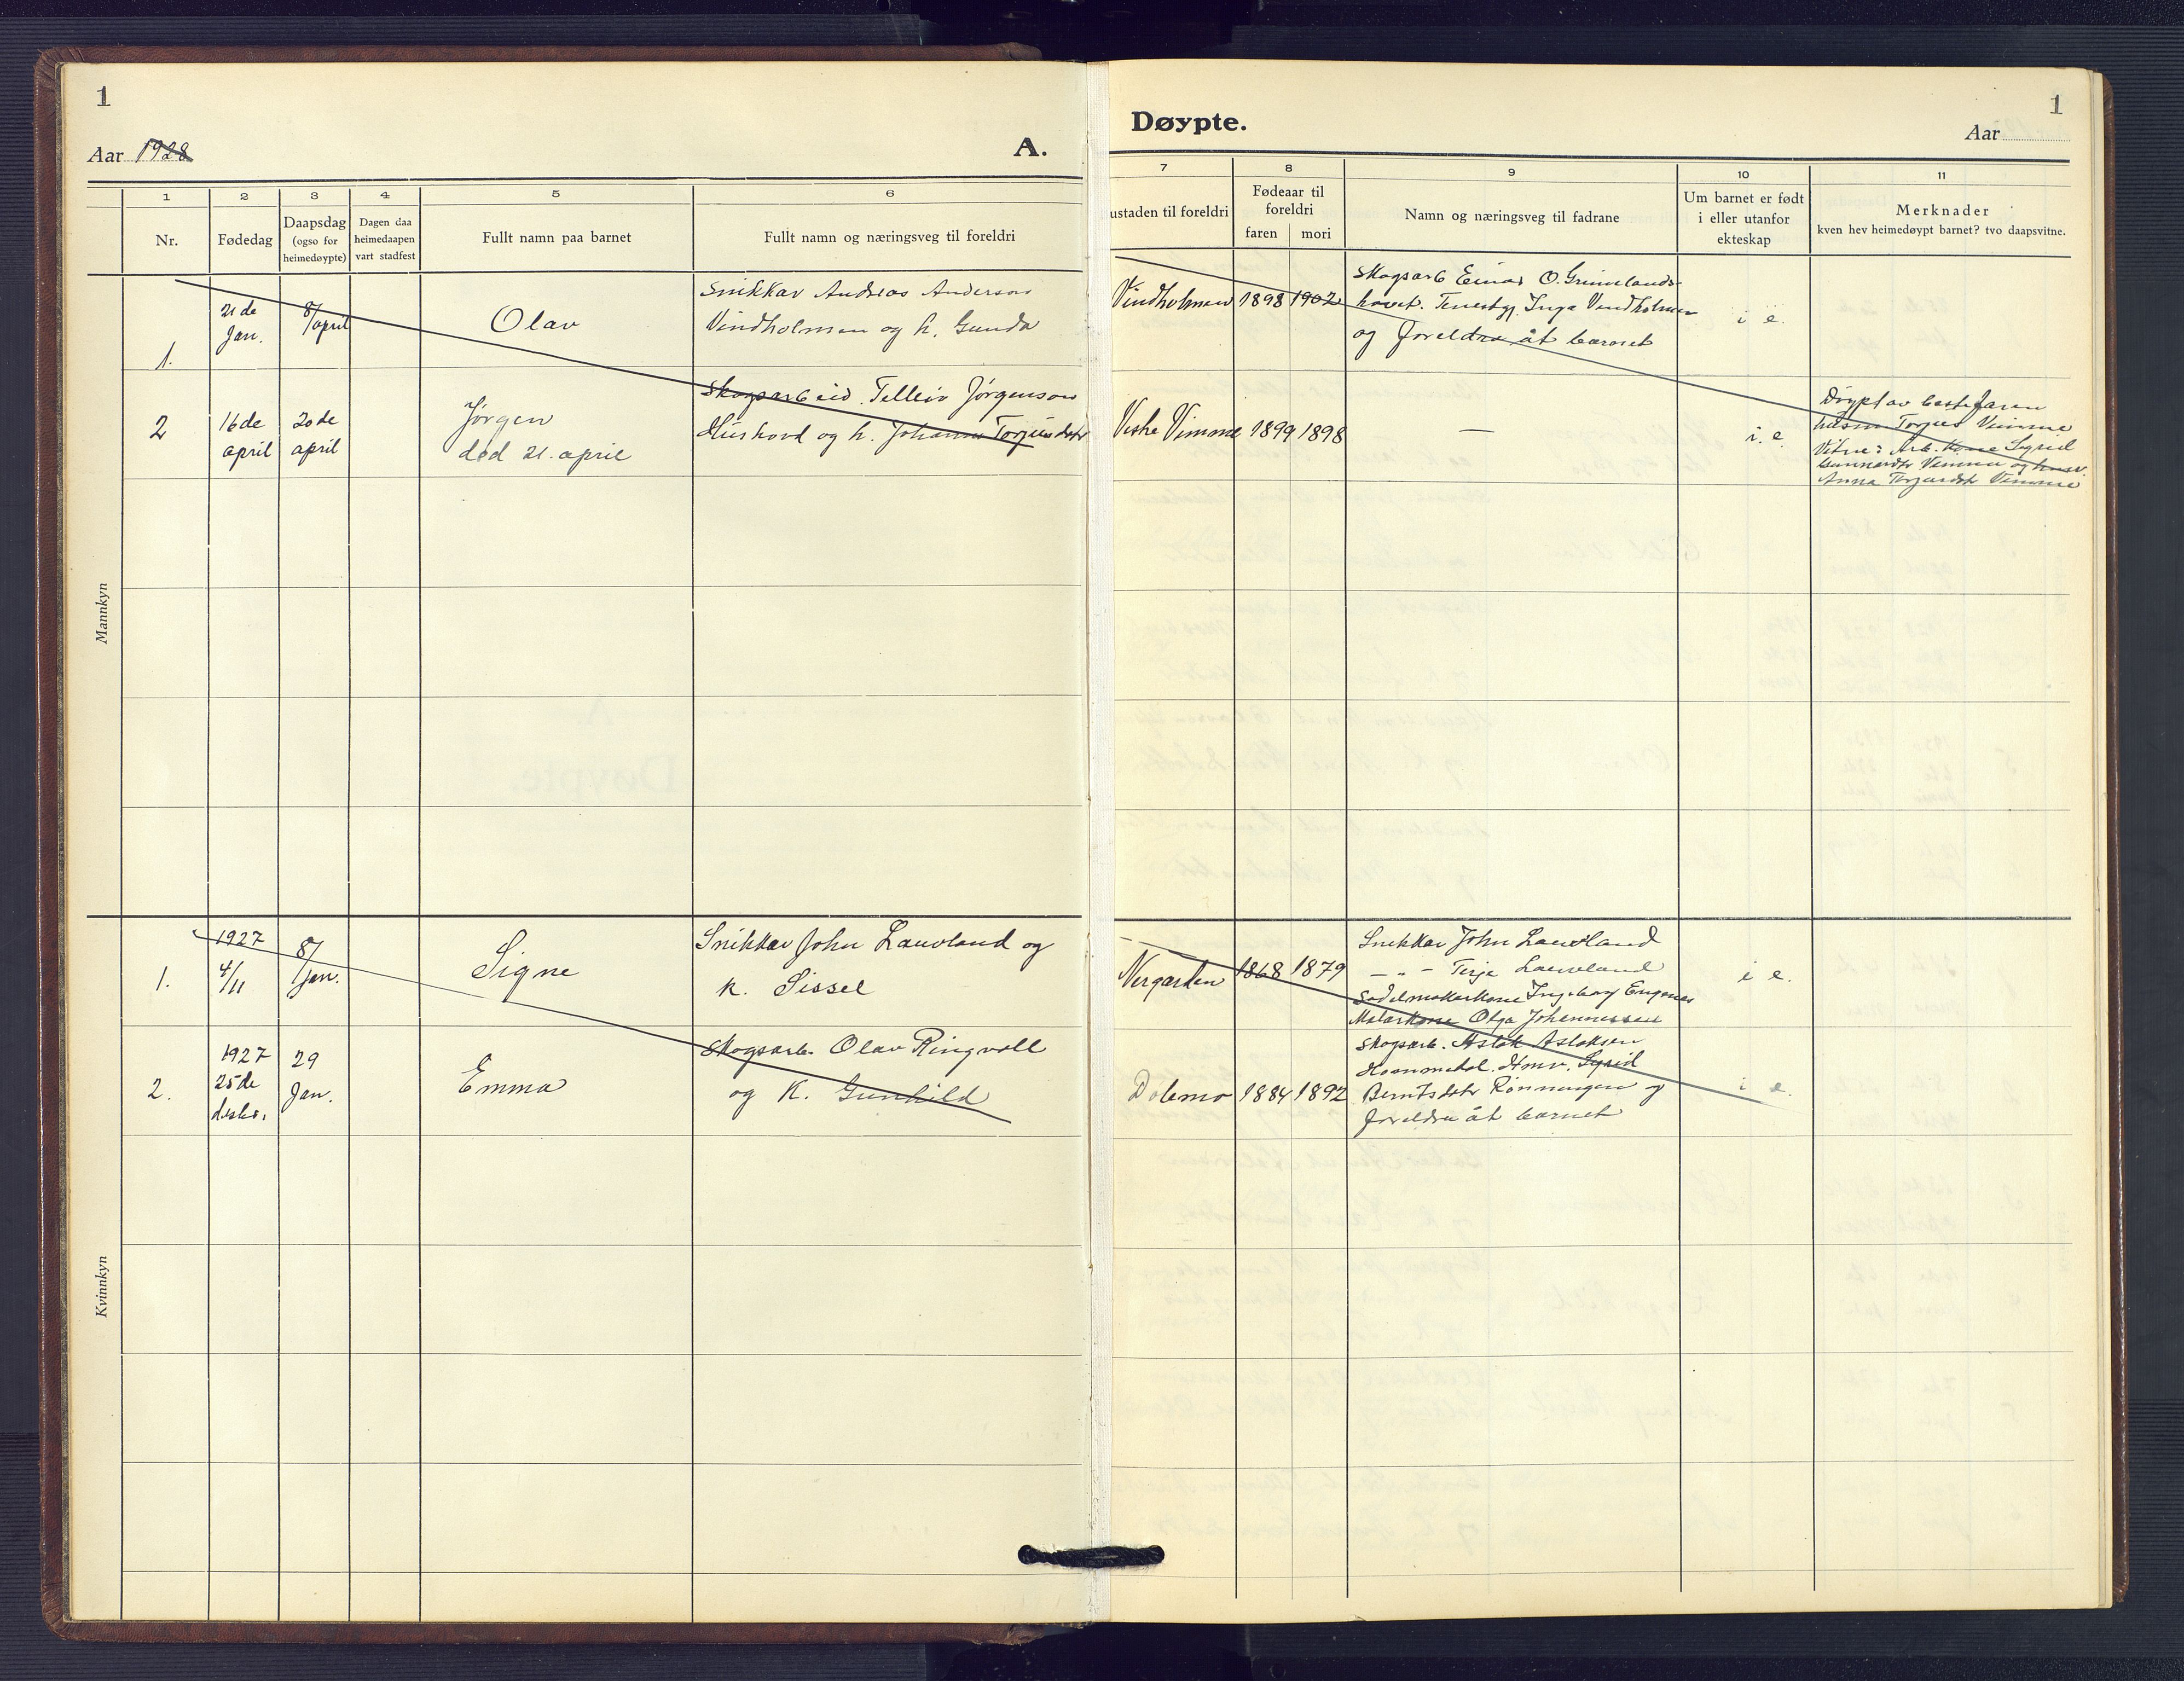 1
Aar 1928
A.
Døypte.
Aar
1
1
2
3
4
5
6
7
8
9
10
11
Nr.
Fødedag
Daapsdag
(ogso for
heimedøypte)
Dagen daa
heimedaapen
vart stadfest
Fullt namn paa barnet
Fullt namn og næringsveg til foreldri
ustaden til foreldri
Fødeaar til
foreldri
faren
mori
Namn og næringsveg til fadrane
Um barnet er født
i eller utanfor
ekteskap
Merknader
kven hev heimedøypt barnet? tvo daapsvitne.
Mannkyn
1.
21de
Jan.
8/april
Olav
Snikkar Andreas Anderson
Vindholmen og k. Gunda
Vindholmen
1898
1902
Skogsarb Einar O. Grimelands-
Inga Vindholmen
og foreldra åt barnet
i e.
2
16de
april
20de
april
Jørgen
død 21. april
Skogsarbeid. Telleiv Jørgenson
Hushovd og k. Johanna Torjusdotr
Vestre Vimme
1899
1898
—
i. e.
Døypt av bestefaren
husm Torjus Vimme
Vitne: Arb. kone Sigrid
Gunnardtr Vimme og husv.
Anna Torjusdtr Vimme
Kvinnkyn
1.
1927
4/11
8/Jan.
Signe
Snikkar John Lauvland og
k. Sissel
Nergarden
1868
1879
Snikkar John Lauvland
— " — Terje Lauvland
Sadelmakarkone Ingeborg Engenes
Malarkone Olga Johannessen
i e.
2.
1927
25de
desbr.
29
Jan.
Emma
Skogsarb. Olav Ringvoll
og K. Gunhild
Dolemo
1884
1892
Skogsarb. Aslak Aslaksen
Hmv. Sigrid
Berntsdotr Rønningen og
foreldra åt barnet
i e.